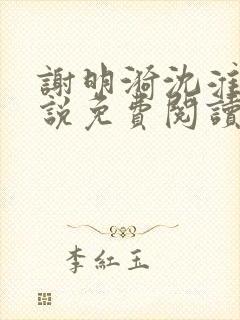 謝明漪沈淮
說免費閱讀
李紅玉